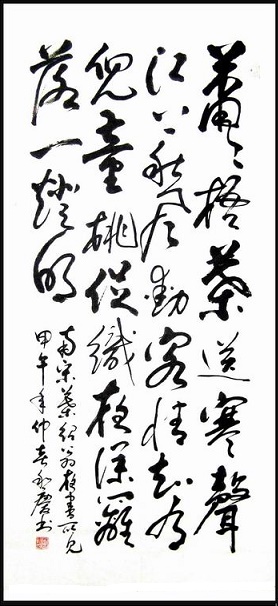 蕭〻梧葉送寒聲
江上秋风動客情知有
兒童挑促織夜深籬
落一燈明
南宋葉紹翁夜書所見
甲午年仲春慶书